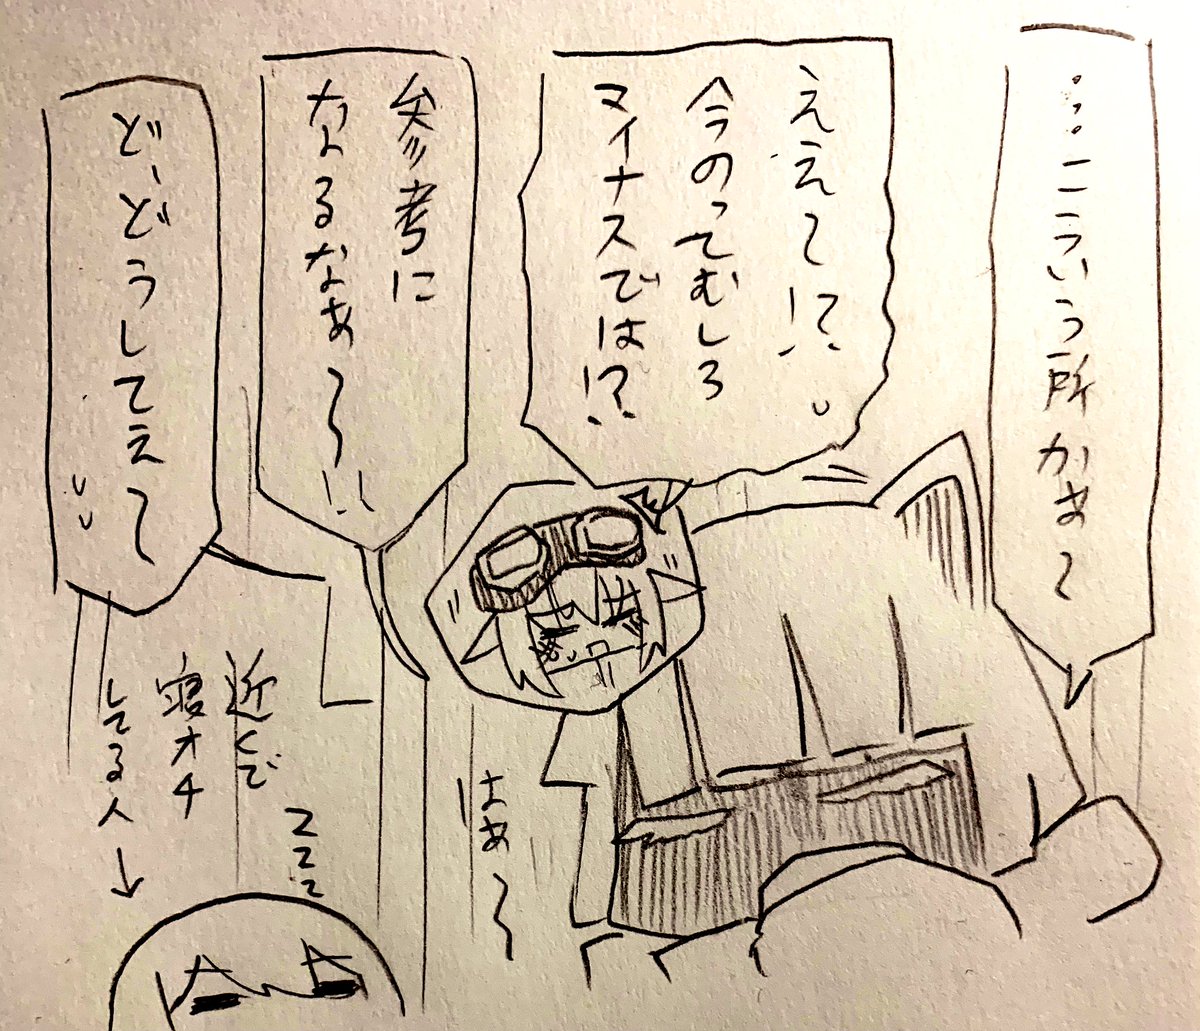 …こういう所かぁ〜
ええ〜!?
今のってむしろ
マイナスでは!?
参考に
なるなぁ〜!!
どーどうしてえ〜
はぁ〜
近くで
寝オチ
してる人↓
zzzz